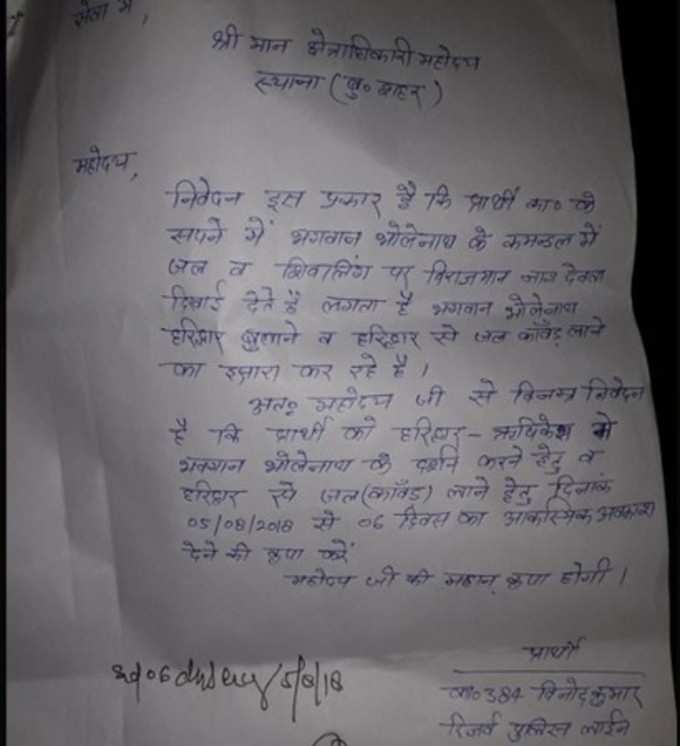 सेवा में,
श्री मान क्षेत्राधिकारी महोदय
स्याना (बु० शहर)
महोदय,
निवेदन इस प्रकार है कि प्रार्थी का० के
सपने में भगवान भोलेनाथ के कमन्डल में
जल व शिवालिंग पर विराजमान नाग देवता
दिखाई देते हैं लगता है भगवान भोलेनाथ
हरिद्वार बुलाने व हरिद्वार से जल काँवड़ लाने
का इशारा कर रहे है।
अतः महोदय जी से विनम्र निवेदन
है कि प्रार्थी को हरिद्वार - ऋषिकेश में
भगवान भोलेनाथ के दर्शन करने हेतु व
हरिद्वार से जल (काँवड) लाने हेतु दिनांक
05/08/2018 से 06 दिवस का आकस्मिक अवकाश
देने की कृपा करें
महोदय जी की महान कृपा होगी।
प्रार्थी
का० 384 विनोद कुमार
रिजर्व पुलिस लाईन
06 days 5/8/18